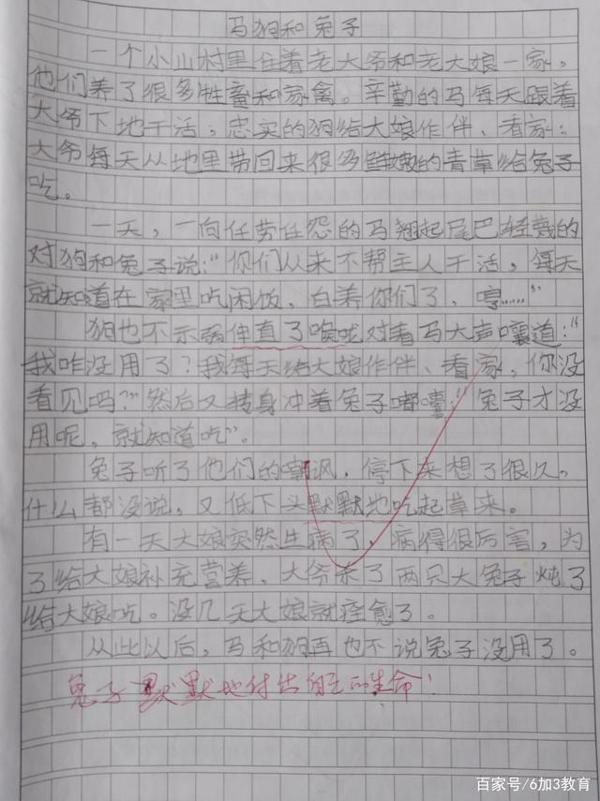 马狗和兔子
一个小山村里住着老大爷和老大娘一家,
他们养了很多牲畜和家禽。辛勤的马每天跟着
大爷下地干活,忠实的狗给大娘作伴、看家;
大爷每天从地里带回来很多鲜嫩的青草给兔子
吃。
一天,一向任劳任怨的马翘起尾巴轻蔑的
对狗和兔子说:“你们从来不帮主人干活,每天
就知道在家里吃闲饭,白养你们了,哼……”
狗也不示弱伸直了喉咙对着马大声嚷道:“
我咋没用了?我每天给大娘作伴、看家,你没
看见吗?”然后又转身冲着兔子嘟囔:“兔子才没
用呢,就知道吃”。
兔子听了他们的嘲讽,停下来想了很久。
什么都没说,又低下头默默地吃起草来。
有一天大娘突然生病了,病得很厉害,为
了给大娘补充营养、大爷杀了两只大兔子炖了
给大娘吃。没几天大娘就痊愈了。
从此以后,马和狗再也不说兔子没用了。
兔子默默地付出自己的生命!
百家号/6加3教育